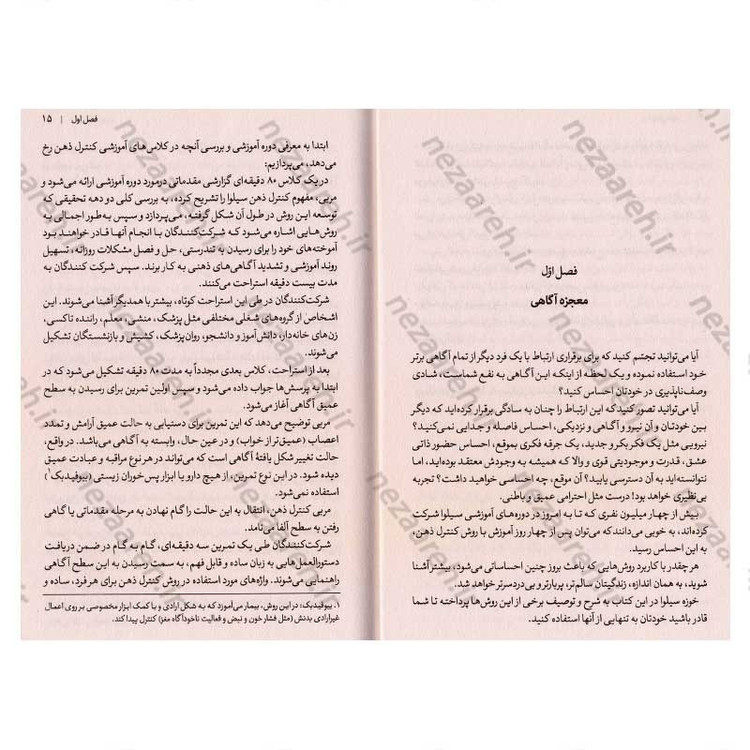 فصل اوّل
معجزه آگاهی
آیا می‌توانید تجسّم کنید که برای برقراری ارتباط با یک فرد دیگر از تمام آگاهی برتر
خود استفاده نموده و یک لحظه از اینکه این آگاهی به نفع شماست، شادی
وصف‌ناپذیری در خودتان احساس کنید؟
آیا می‌توانید تصور کنید که این ارتباط را چنان به سادگی برقرار کرده‌اید که دیگر
بین خودتان و آن نیرو و آگاهی و نزدیکی، احساس فاصله و جدایی نمی‌کنید؟
نیرویی مثل یک فکر بکر و جدید، یک جرقه فکری بموقع، احساس حضور ذاتی
عشق، قدرت و موجودیتی قوی و والا که همیشه به وجودش معتقد بوده‌اید، اما
نتوانسته‌اید به آن دسترسی یابید؟ آن موقع، چه احساسی خواهید داشت؟ تجربه
بی‌نظیری خواهد بود! درست مثل احترامی عمیق و باطنی.
بیش از چهار میلیون نفری که تا به امروز در دوره‌های آموزشی سیلوا شرکت
کرده‌اند، به خوبی می‌دانند که می‌توان پس از چهار روز آموزش با روش کنترل ذهن،
به این احساس رسید.
هر چقدر با کاربرد روش‌هایی که باعث بروز چنین احساساتی می‌شود، بیشتر آشنا
شوید، به همان اندازه، زندگیتان سالم‌تر، پربارتر و بی‌دردسرتر خواهد شد.
خوزه سیلوا در این کتاب به شرح و توصیف برخی از این روش‌ها پرداخته تا شما
قادر باشید خودتان به تنهایی از آنها استفاده کنید.
فصل اول | ۱۵
ابتدا به معرفی دوره آموزشی و بررسی آنچه در کلاس‌های آموزشی کنترل ذهن رخ
می‌دهد، می‌پردازیم:
در یک کلاس ۸۰ دقیقه‌ای گزارشی مقدماتی درمورد دوره آموزشی ارائه می‌شود و
مربی، مفهوم کنترل ذهن سیلوا را تشریح کرده، به بررسی کلی دو دهه تحقیقی که
توسعه این روش در طول آن شکل گرفته، می‌پردازد و سپس به‌طور اجمالی به
روش‌هایی اشاره می‌شود که شرکت‌کنندگان با انجام آنها قادر خواهند بود
آموخته‌های خود را برای رسیدن به تندرستی، حل و فصل مشکلات روزانه، تسهیل
روند آموزشی و تشدید آگاهی‌های ذهنی به کار برند. سپس شرکت کنندگان به
مدت بیست دقیقه استراحت می‌کنند.
شرکت‌کنندگان در طی این استراحت کوتاه، بیشتر با همدیگر آشنا می‌شوند. این
اشخاص از گروه‌های شغلی مختلفی مثل پزشک، منشی، معلم، راننده تاکسی،
زن‌های خانه‌دار، دانش‌آموز و دانشجو، روان‌پزشک، کشیش و بازنشستگان تشکیل
می‌شوند.
بعد از استراحت، کلاس بعدی مجدداً به مدت ۸۰ دقیقه تشکیل می‌شود که در
ابتدا به پرسش‌ها جواب داده می‌شود و سپس اولین تمرین برای رسیدن به سطح
عمیق آگاهی آغاز می‌شود.
مربی توضیح می‌دهد که این تمرین برای دستیابی به حالت عمیق آرامش و تمدد
اعصاب (عمیق‌تر از خواب) و در عین حال، وابسته به آگاهی می‌باشد. در واقع،
حالت تغییر شکل یافتهٔ آگاهی است که می‌تواند در هر نوع مراقبه و عبادت عمیق
دیده شود. در این نوع تمرین، از هیچ دارو یا ابزار پس‌خوران زیستی (بیوفیدبک۱)
استفاده نمی‌شود.
مربی کنترل ذهن، انتقال به این حالت را گام نهادن به مرحله مقدماتی یا گاهی
رفتن به سطح آلفا می‌نامد.
شرکت‌کنندگان طی یک تمرین سه دقیقه‌ای، گام به گام در ضمن دریافت
دستورالعمل‌هایی به زبان ساده و قابل فهم، به سمت رسیدن به این سطح آگاهی
راهنمایی می‌شوند. واژه‌های مورد استفاده در روش کنترل ذهن برای هر فرد، ساده و
۱. بیوفیدبک: در این روش، بیمار می‌آموزد که به شکل ارادی و با کمک ابزار مخصوصی بر روی اعمال
غیرارادی بدنش (مثل فشار خون و نبض و فعالیت ناخودآگاه مغز) کنترل پیدا کند.
nezaareh.ir